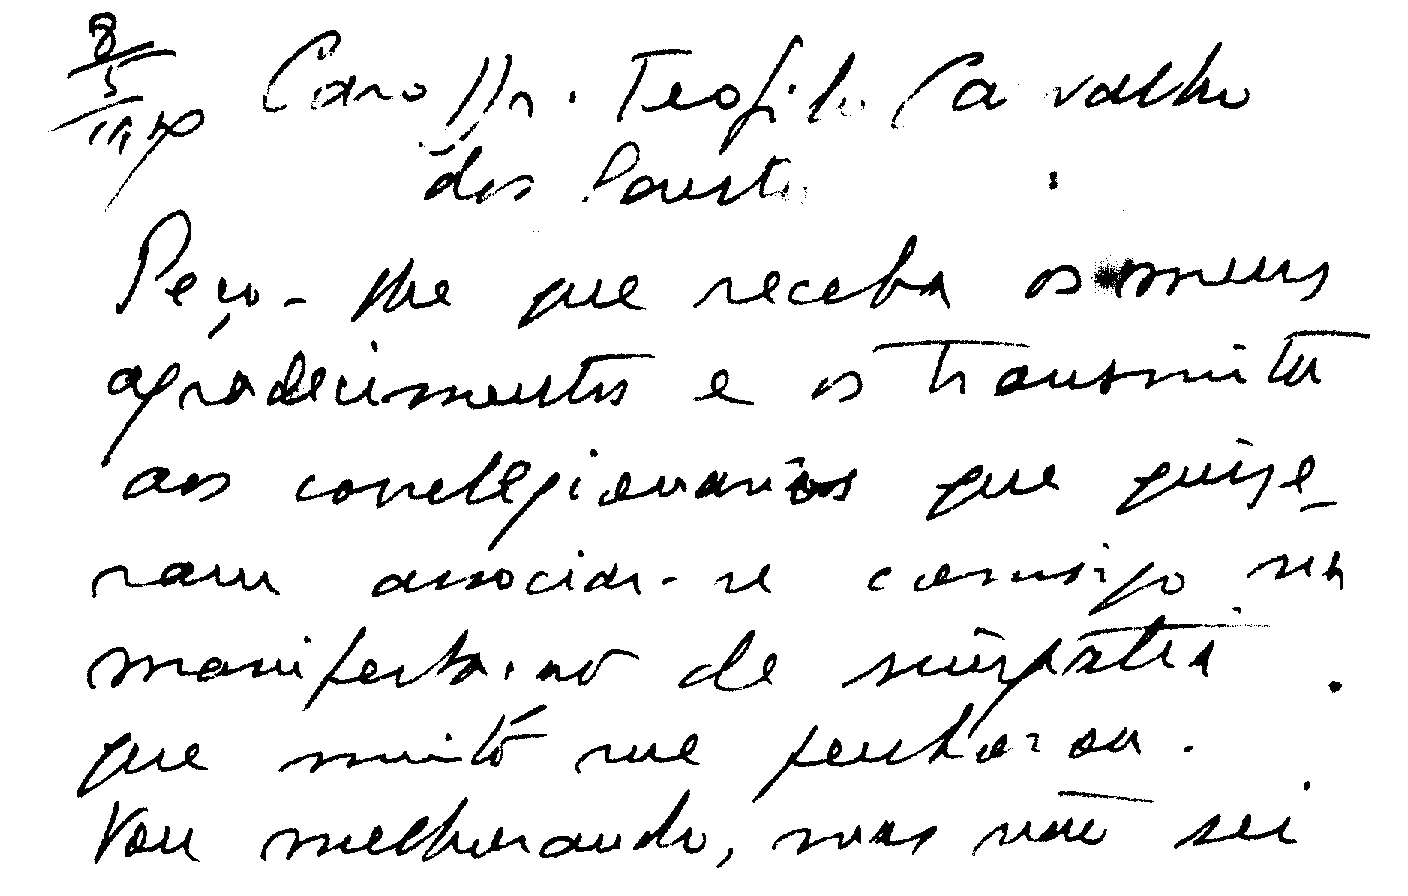 8/5/1970 Caro Sr. Teofilo Carvalho
dos Santos
Peço-lhe que receba os meus
agradecimentos e os transmita
aos correlegionarios que quise-
ram associar-se comsigo na
manifestação de simpatia
que muito me penhorou.
Vou melhorando, mas não sei